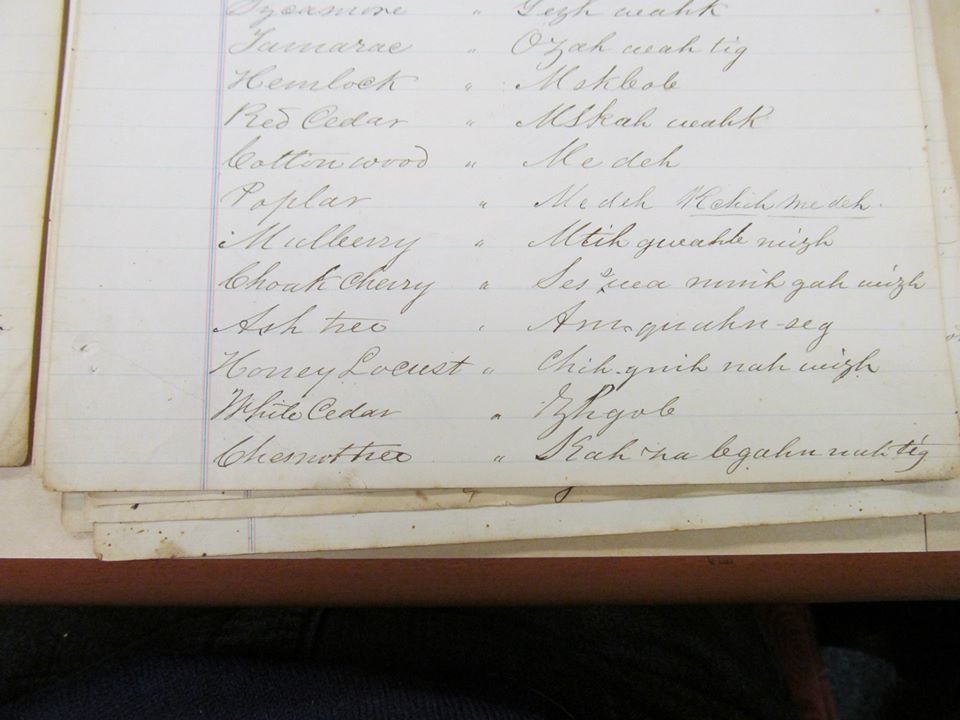 Sycamore " Gezh weahk
Tamarac " Ozah weah tig
Hemlock " Mskbob
Red Cedar " MSkah weahk
Cotton wood " Me deh
Poplar " Medeh Kchih me deh.
Mulberry " Mtih gweahb mizh
Choak Cherry " Ses wea minih gah wizh
Ash tree " Am quahn-seg
Honey Locust " Chih-gnih nah wizh
White Cedar " Zhgob
Chesnot tree " Kah na bgahn nah tig